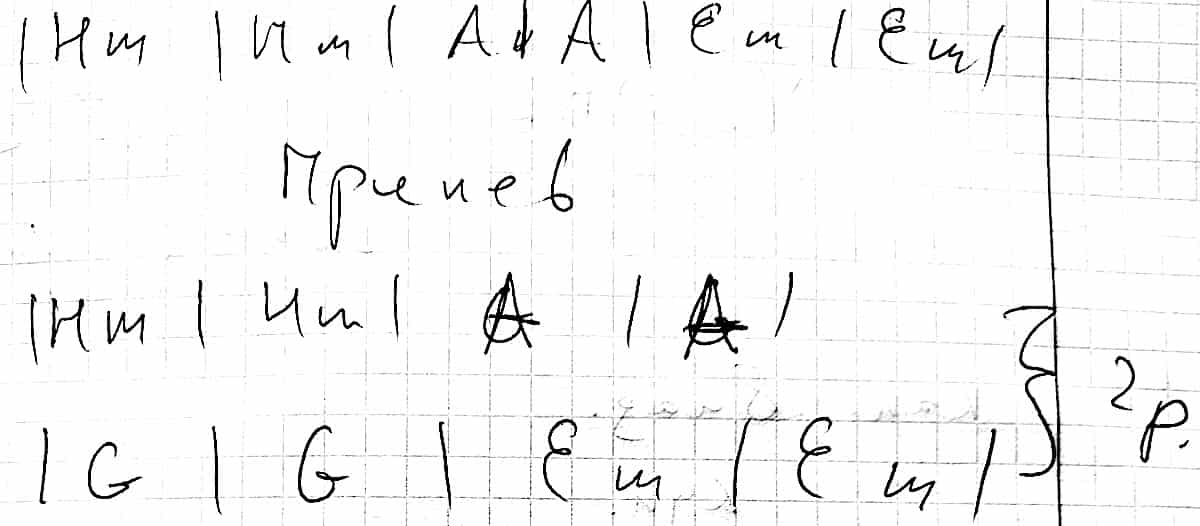 |Hm |Hm| A A | Em | Em|
Припев
|Hm | Hm| A | A |
|G | G | Em | Em | } 2р.